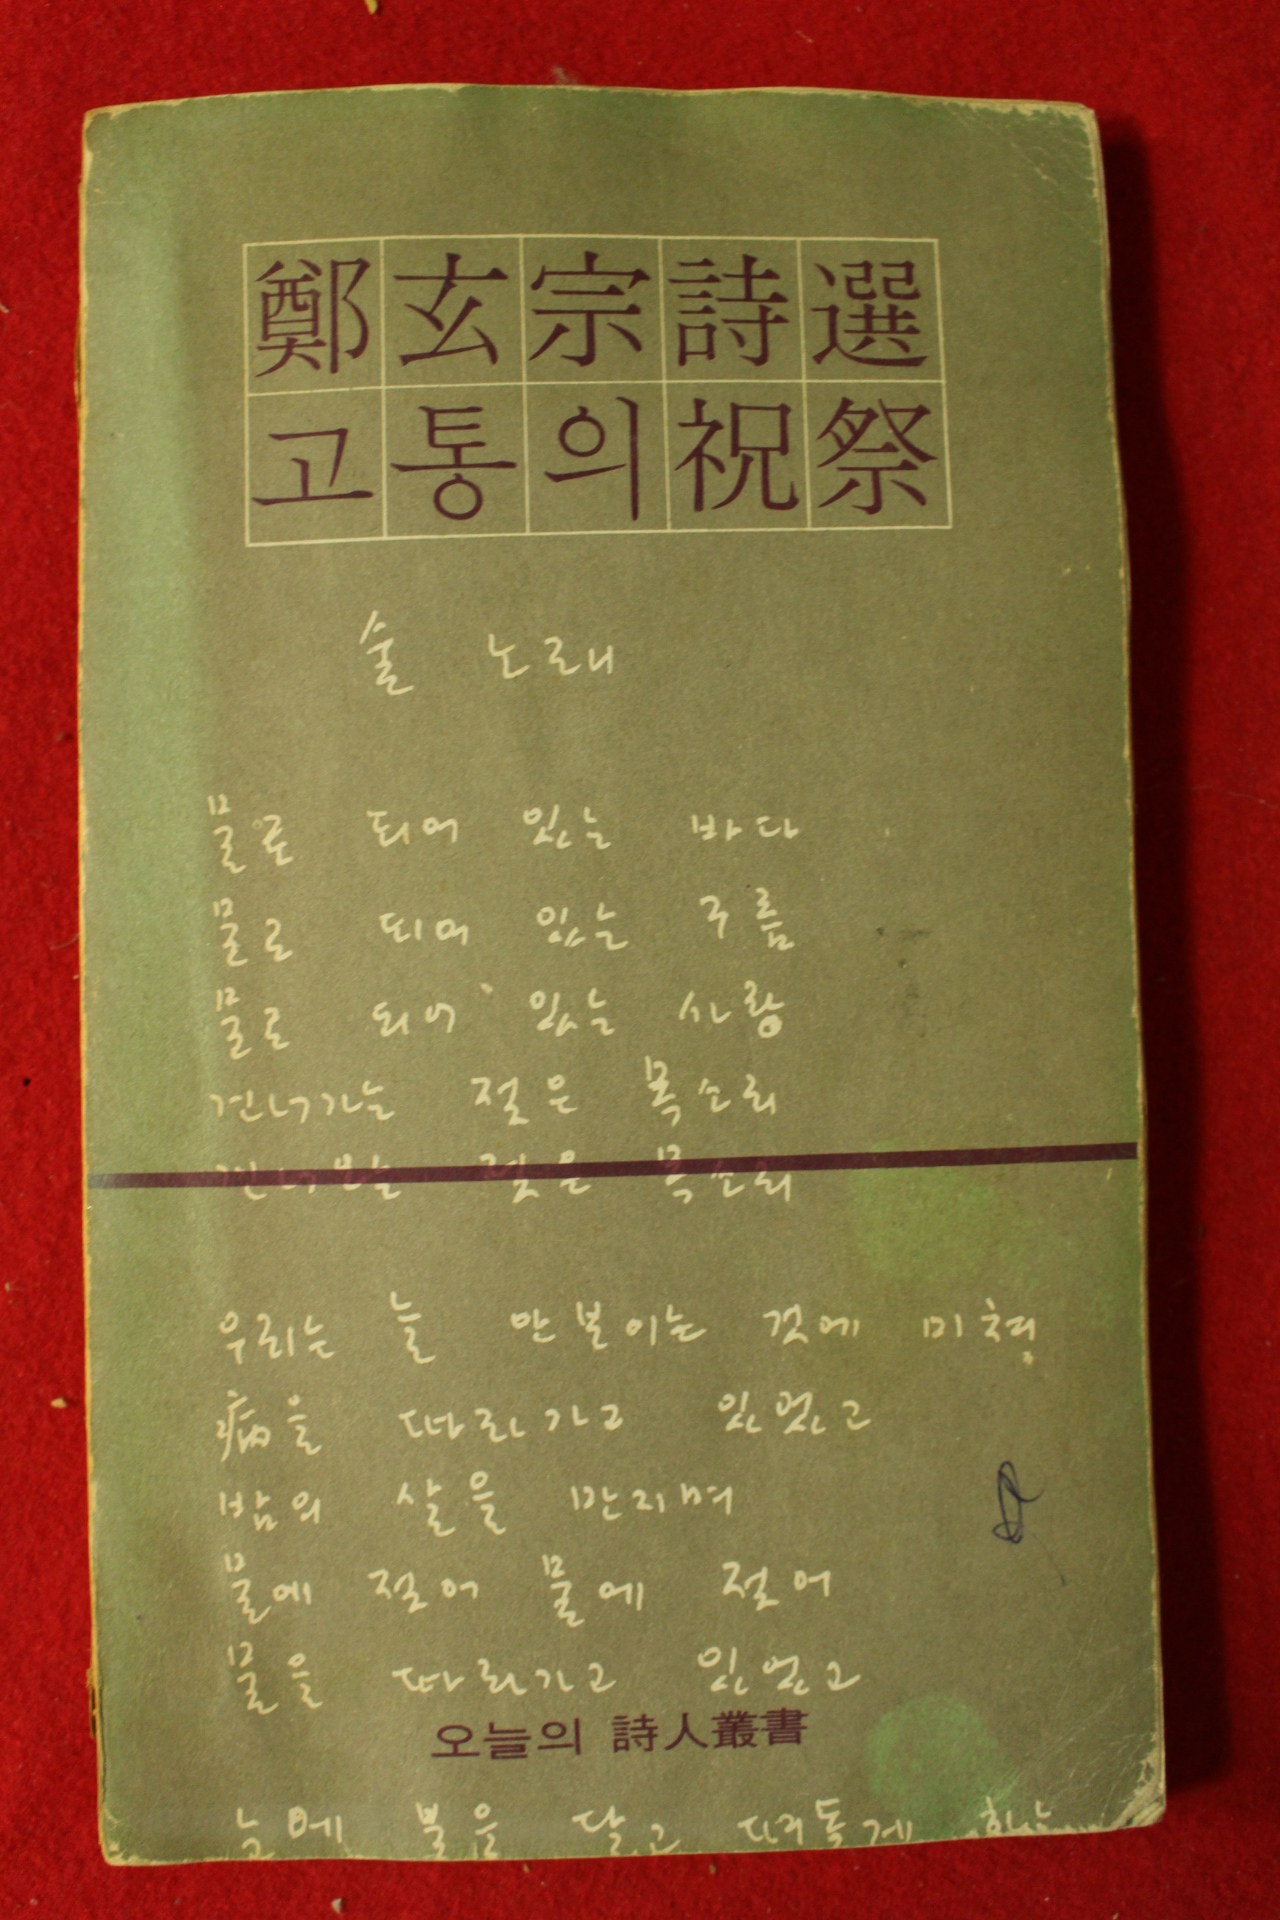 鄭玄宗詩選
고통의祝祭
술 노래
물로 되어 있는 바다
물로 되어 있는 구름
물로 되어 있는 사랑
건너가는 젖은 목소리
건너오는 젖은 목소리
우리는 늘 안 보이는 것에 미쳐
病을 따라가고 있었고
밤의 살을 만지며
물에 젖어 물에 젖어
물을 따라가고 있었고
오늘의 詩人叢書
눈에 불을 달고 떠돌게 하는